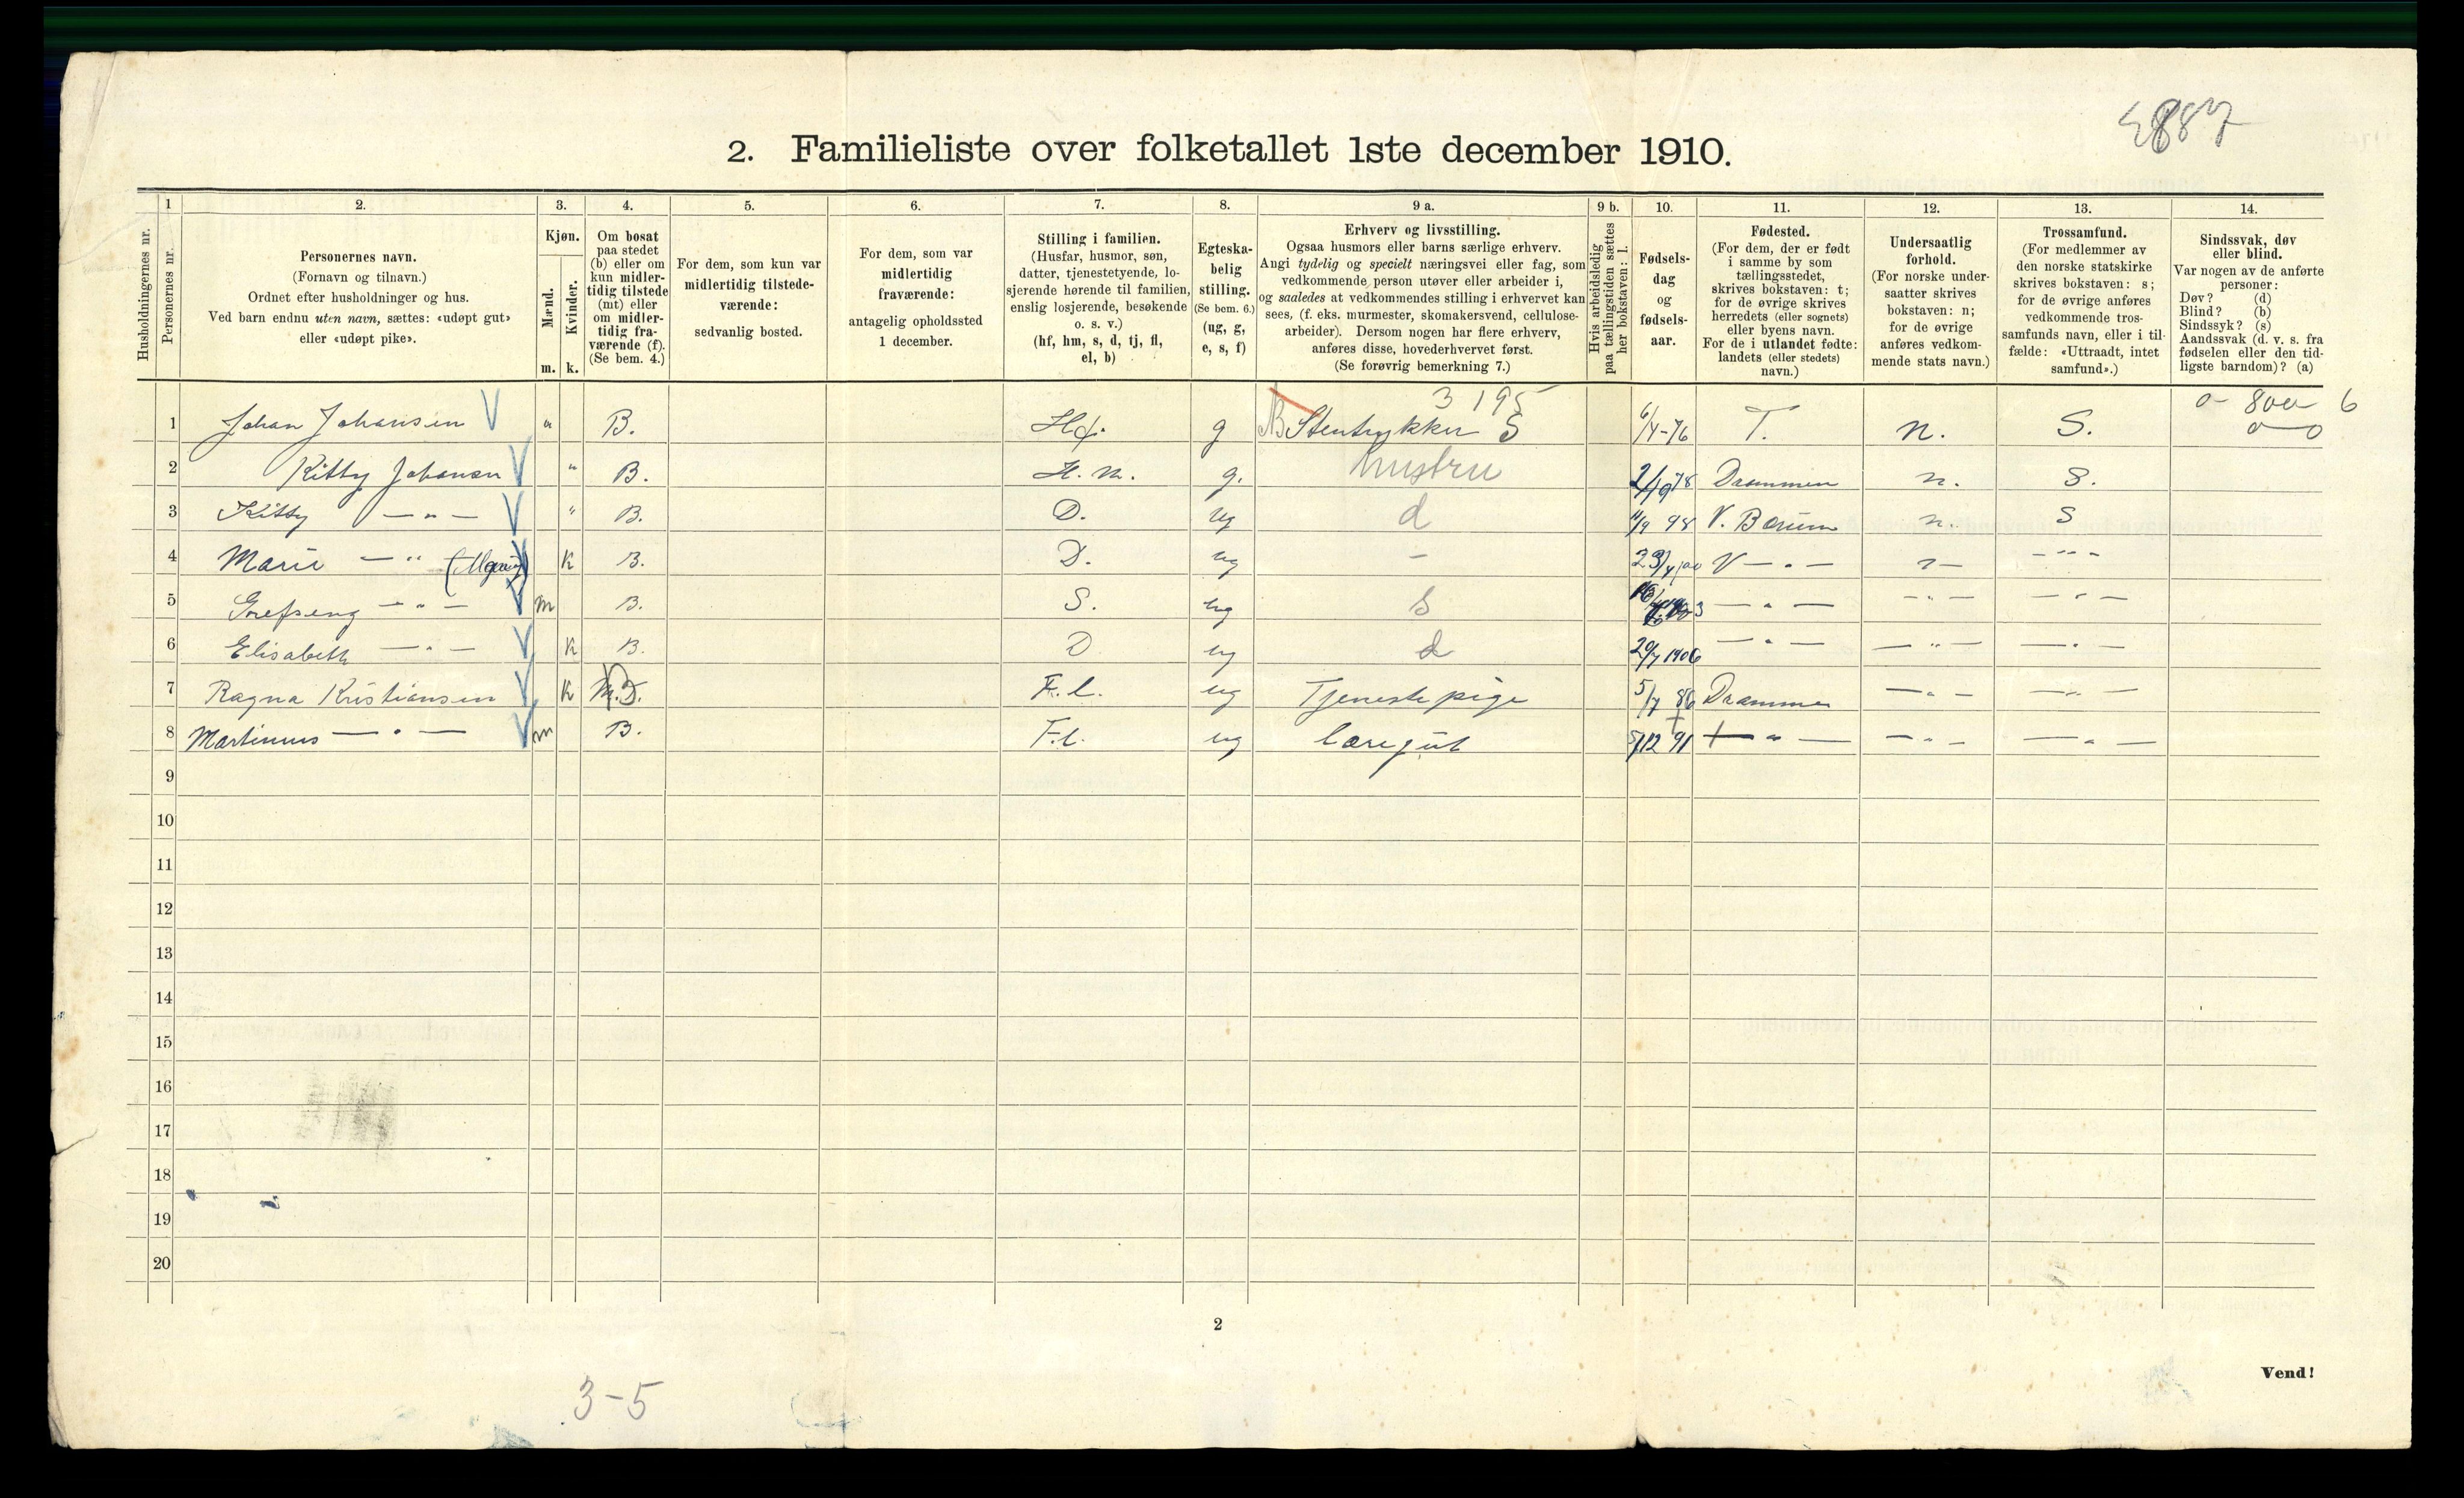 4887
2. Familieliste over folketallet 1ste december 1910.
1 2. 3. 4. 5. 6. 7. 8. 9 a. 9 b. 10. 11. 12. 13. 14.
Husholdningernes nr.
Personernes nr.
Personernes navn.
(Fornavn og tilnavn.)
Ordnet efter husholdninger og hus.
Ved barn endnu uten navn, sættes: «udøpt gut»
eller «udøpt pike».
Kjøn.
Mænd.
Kvinder.
m. k.
Om bosat
paa stedet
(b) eller om
kun midler-
tidig tilstede
(mt) eller
om midler-
tidig fra-
værende (f).
(Se bem. 4.)
For dem, som kun var
midlertidig tilstede-
værende:
sedvanlig bosted.
For dem, som var
midlertidig
fraværende:
antagelig opholdssted
1 december.
Stilling i familien.
(Husfar, husmor, søn,
datter, tjenestetyende, lo-
sjerende hørende til familien,
enslig losjerende, besøkende
o. s. v.)
(hf, hm, s, d, tj, fl,
el, b)
Egteska-
belig
stilling.
(Se bem. 6.)
(ug, g,
e, s, f)
Erhverv og livsstilling.
Ogsaa husmors eller barns særlige erhverv.
Angi tydelig og specielt næringsvei eller fag, som
vedkommende person utøver eller arbeider i,
og saaledes at vedkommendes stilling i erhvervet kan
sees, (f. eks. murmester, skomakersvend, cellulose-
arbeider). Dersom nogen har flere erhverv,
anføres disse, hovederhvervet først.
(Se forøvrig bemerkning 7.)
Hvis arbeidsledig
paa tællingstiden sættes
her bokstaven: l.
Fødsels-
dag
og
fødsels-
aar.
Fødested.
(For dem, der er født
i samme by som
tællingsstedet,
skrives bokstaven: t;
for de øvrige skrives
herredets (eller sognets)
eller byens navn.
For de i utlandet fødte:
landets (eller stedets)
navn.)
Undersaatlig
forhold.
(For norske under-
saatter skrives
bokstaven: n;
for de øvrige
anføres vedkom-
mende stats navn.)
Trossamfund.
(For medlemmer av
den norske statskirke
skrives bokstaven: s;
for de øvrige anføres
vedkommende tros-
samfunds navn, eller i til-
fælde: «Uttraadt, intet
samfund».)
Sindssvak, døv
eller blind.
Var nogen av de anførte
personer:
Døv? (d)
Blind? (b)
Sindssyk? (s)
Aandssvak (d. v. s. fra
fødselen eller den tid-
ligste barndom)? (a)
3 195 0 - 800 6
1 Johan Johansen V B. Hf. g Stentrykker S 6/4-76 T. n. S. 0 - 0
2 Kitty Johansen V " B. H. m. g. hustru 2/10 78 Drammen n. S.
3 Kitty — " — V " B. D. ug d 11/9 98 V. Bærum n. S
4 Marie — " K B. D. ug - 23/4 00 V — " — n — - " -
5 — " — V m B. S. ug s — " — - " - — " —
6 Elisabeth — " — V K B. D ug d 20/7 1906 — " — — " — — " —
7 Ragna Kristiansen V K M.T. F. l. ug Tjenestepige 5/7 86 Drammen — " — — " —
8 Martinius — " — V m B. F. l. ug læregut 5/12 91 — " — — " — — " —
9
10
11
12
13
14
15
16
17
18
19
20
2
Vend!
3-5